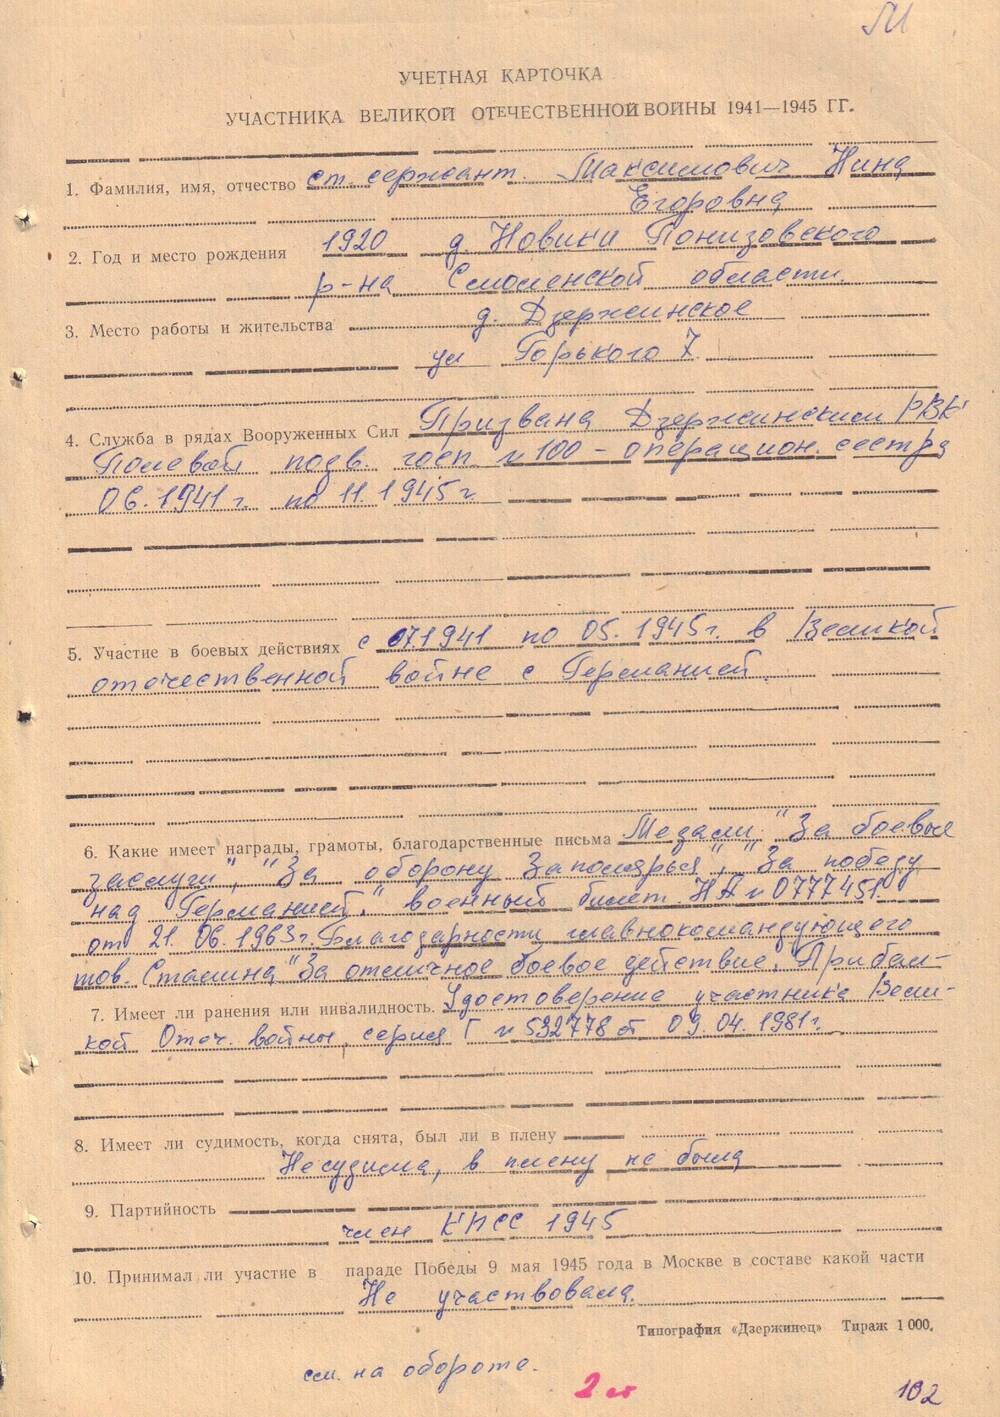 М
УЧЕТНАЯ КАРТОЧКА
УЧАСТНИКА ВЕЛИКОЙ ОТЕЧЕСТВЕННОЙ ВОЙНЫ 1941—1945 ГГ.
1. Фамилия, имя, отчество ст. сержант. Максимович Нина
Егоровна
2. Год и место рождения 1920 д. Новики Понизовского
р-на Смоленской области.
3. Место работы и жительства д. Дзержинское
ул Горького 7.
4. Служба в рядах Вооруженных Сил Призвана Дзержинским РВК
Полевой подв. госп. N 100 - операцион. сестра
06.1941 г. по 11.1945 г.
5. Участие в боевых действиях с 07.1941 по 05.1945 г. в Великой
отечественной войне с Германией.
6. Какие имеет награды, грамоты, благодарственные письма Медали "За боевые
заслуги", "За оборону Заполярья", "За победу
над Германией." военный билет НА N 0777451
от 21.06.1963 г. Благодарности главнокомандующего
тов. Сталина "За отличное боевое действие. Прибал-
7. Имеет ли ранения или инвалидность. Удостоверение участника Вели-
кой Отеч. войны, серия Г N 532778 от 09.04.1981 г.
8. Имеет ли судимость, когда снята, был ли в плену
Несудима, в плену не была
9. Партийность
член КПСС 1945
10. Принимал ли участие в параде Победы 9 мая 1945 года в Москве в составе какой части
Не участвовала.
Типография «Дзержинец» Тираж 1 000.
см. на обороте.
2 ст
102